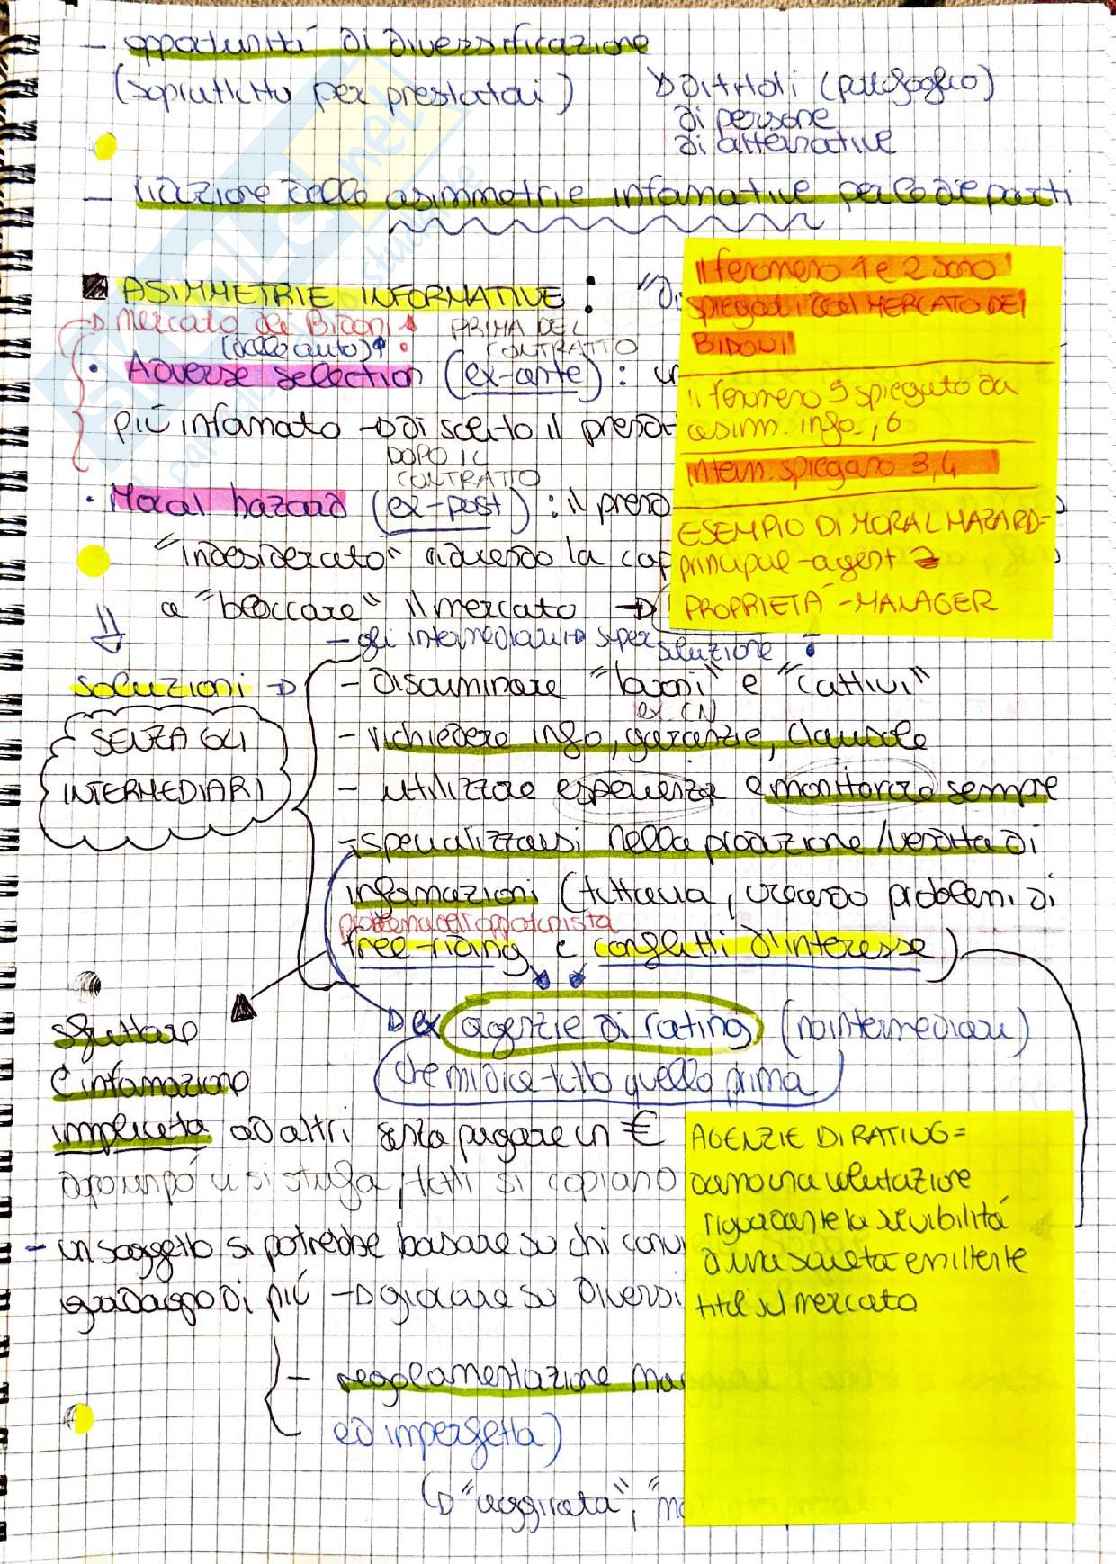 - opportunità di diversificazione
(soprattutto per prestatori) → di titoli (portafoglio)
di persone
di alternative
- riduzione delle asimmetrie informative per le due parti
ASIMMETRIE INFORMATIVE:
→ Mercato dei Bidoni
PRIMA DEL
CONTRATTO
(delle auto)
• Adverse selection (ex-ante):
più informato →
DOPO IL
CONTRATTO
• Moral hazard (ex-post): il
"indesiderato" riducendo la
a "bloccare" il mercato →
- gli intermediari
soluzione
soluzioni →
- discriminare "buoni" e "cattivi"
SENZA GLI
INTERMEDIARI
- richiedere info, garanzie, clausole
- utilizzare esperienza e monitorare sempre
- specializzarsi nella produzione/vendita di
informazioni (tuttavia, creando problemi di
problema dell'opportunista
free-riding e conflitti d'interesse)
sfruttare
l'informazione
implicita ad altri senza pagare in €
→ ex agenzie di rating (no intermediari)
che mi dice tutto quello prima
tutti si copiano
- un soggetto si potrebbe basare su chi
guadagno di più → giocare su diversi
- regolamentazione
ed imperfetta)
Il fenomeno 1 e 2 sono
spiegati dal MERCATO DEI
BIDONI
il fenomeno 5 spiegato da
asimm. info., 6
interm. spiegano 3,4
ESEMPIO DI MORAL HAZARD=
principal-agent
PROPRIETÀ-MANAGER
AGENZIE DI RATING=
danno una valutazione
riguardante la solvibilità
di una società emittente
titoli sul mercato